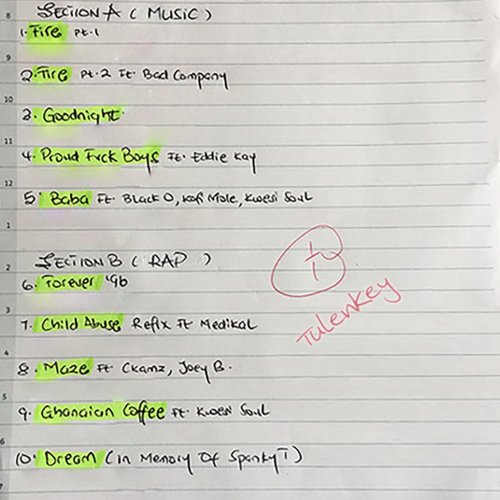 SECTION A ( MUSIC )
1. Fire Pt.1
2. Fire Pt.2 Ft Bad Company
3. Goodnight
4. Proud Fvck Boys Ft. Eddie Kay
5. Baba Ft. Black O, Kofi Mole, Kwesi Soul
SECTION B ( RAP )
6. Forever '96
7. Child Abuse Refix Ft Medikal
8. Maze Ft Ckamz, Joey B.
9. Ghanaian Coffee Ft. Kwesi Soul
10. Dream (In Memory Of Spanky T)
1/1
Tulenkey
8
9
10
11
12
1
2
3
4
5
6
7